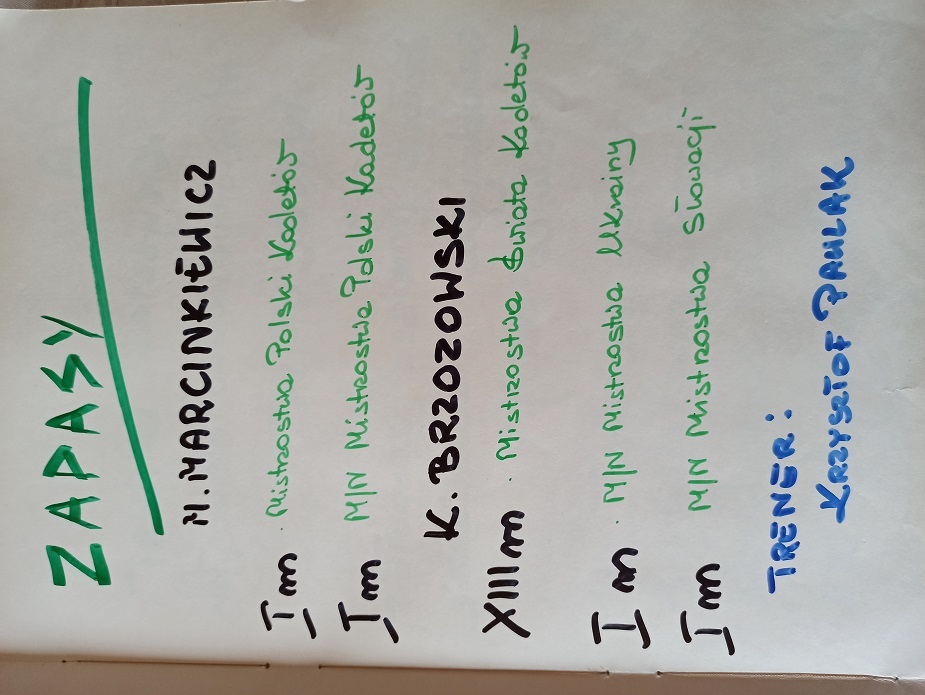 ZAPASY
M. MARCINKIEWICZ
I m · Mistrzostwa Polski Kadetów
I m M/N Mistrzostwa Polski Kadetów
K. BRZOZOWSKI
XIII m · Mistrzostwa Świata Kadetów
I m · M/N Mistrzostwa Ukrainy
I m M/N Mistrzostwa Słowacji
TRENER:
KRZYSZTOF PAWLAK